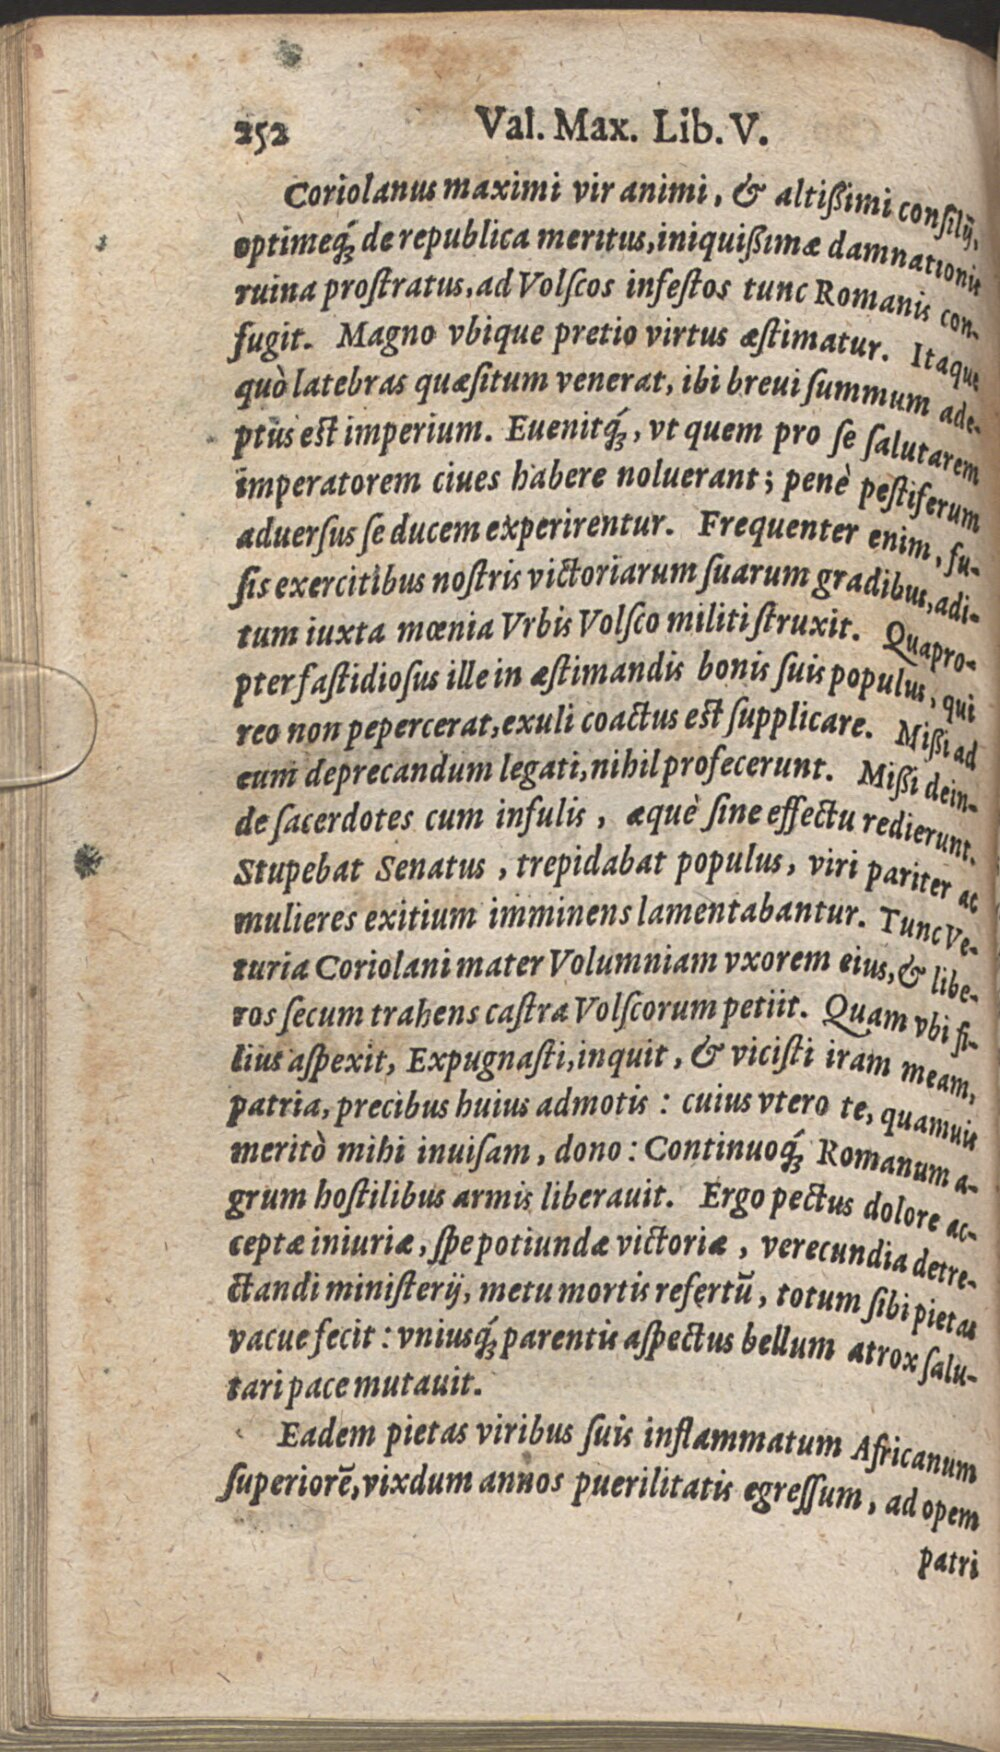 252 Val. Max. Lib. V.
Coriolanus maximi vir animi, & altißimi consilij,
optimeq́; de republica meritus, iniquißimæ damnationis
ruina prostratus, ad Volscos infestos tunc Romanis con-
fugit. Magno vbique pretio virtus æstimatur. Itaque
quò latebras quæsitum venerat, ibi breui summum ade-
ptus est imperium. Euenitq́;, vt quem pro se salutarem
imperatorem ciues habere noluerant; penè pestiferum
aduersus se ducem experirentur. Frequenter enim, fu-
sis exercitibus nostris victoriarum suarum gradibus, adi-
tum iuxta mœnia Vrbis Volsco militi struxit. Quapro-
pter fastidiosus ille in æstimandis bonis suis populus, qui
reo non pepercerat, exuli coactus est supplicare. Mißi ad
eum deprecandum legati, nihil profecerunt. Mißi dein-
de sacerdotes cum infulis, æquè sine effectu redierunt.
Stupebat Senatus, trepidabat populus, viri pariter ac
mulieres exitium imminens lamentabantur. Tunc Ve-
turia Coriolani mater Volumniam vxorem eius, & libe-
ros secum trahens castra Volscorum petiit. Quam vbi fi-
lius aspexit, Expugnasti, inquit, & vicisti iram meam,
patria, precibus huius admotis: cuius vtero te, quamuis
meritò mihi inuisam, dono: Continuoq́; Romanum a-
grum hostilibus armis liberauit. Ergo pectus dolore ac-
ceptæ iniuriæ, spe potiundæ victoriæ, verecundia detre-
ctandi ministerij, metu mortis refertū, totum sibi pietas
vacuefecit: vniusq́; parentis aspectus bellum atrox salu-
tari pace mutauit.
Eadem pietas viribus suis inflammatum Africanum
superiorē, vixdum annos puerilitatis egressum, ad opem
patri